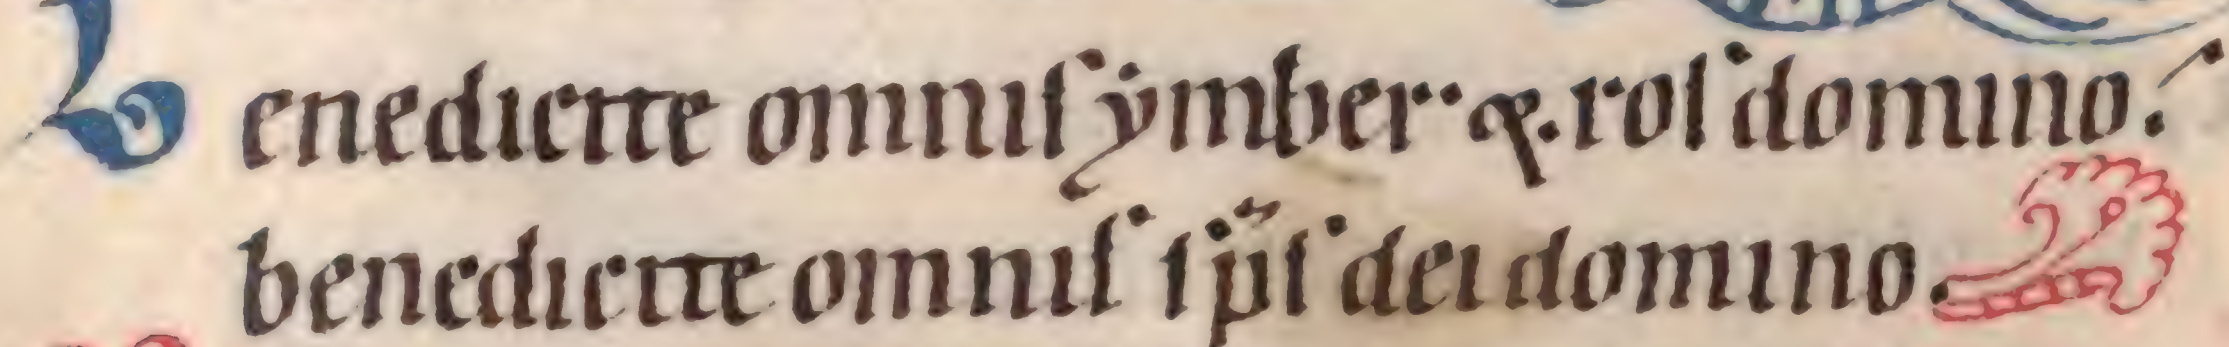 Benedicite omnis ymber. &. ros domino.
benedicite omnis sp̄s dei domino.